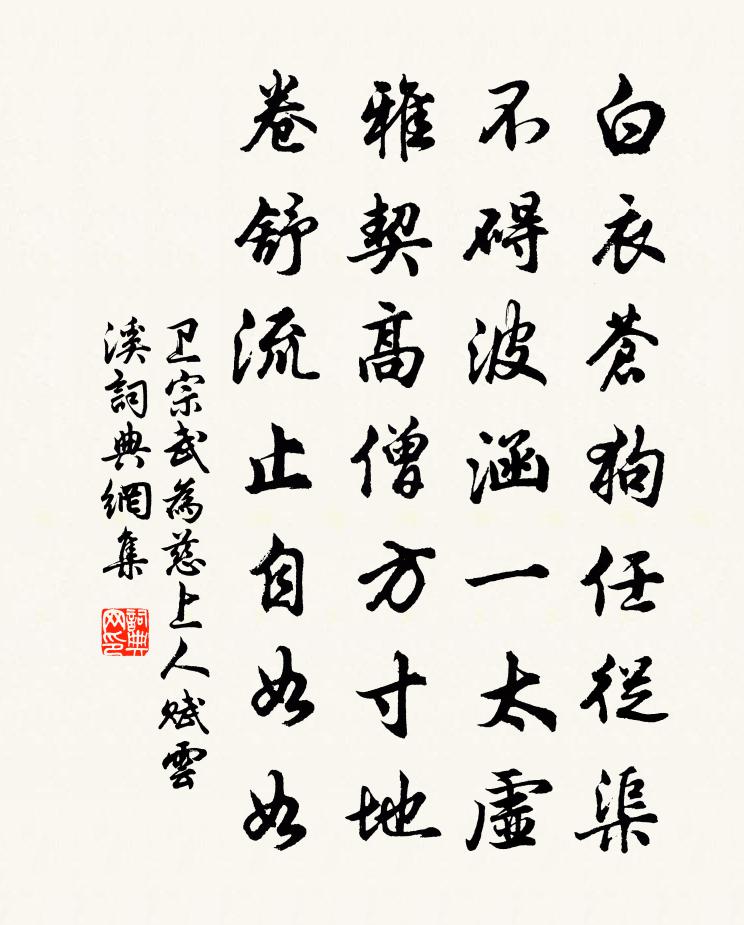 白衣蒼狗任從渠
不碍波涵一太虛
雅契高僧方寸地
卷舒流止自如如
卫宗武為慈上人賦雲
溪詞典網集
詞典网印